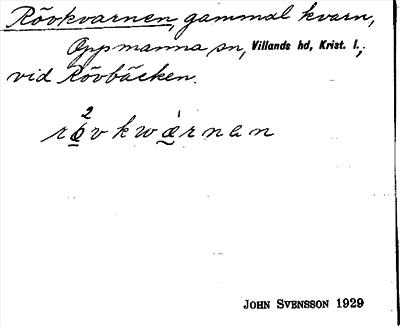 Rövkvarnen, gammal kvarn,
Oppmanna sn, Villands hd, Krist. l.,
vid Rövbäcken.
2
rövkwàrnan
JOHN SVENSSON 1929